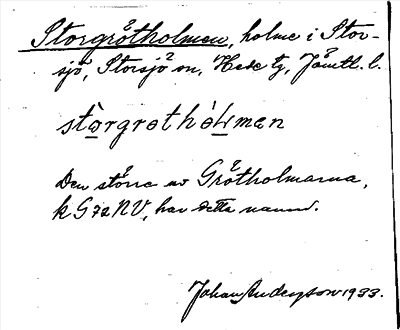 Storgrötholmen, holme i Stor-
sjö, Storsjö sn, Hede tg, Jämtl. l.
störgrøthòłmen
Den större av Grötholmarna,
k G 72 NV, har detta namn.
Johan Anderzson 1933.